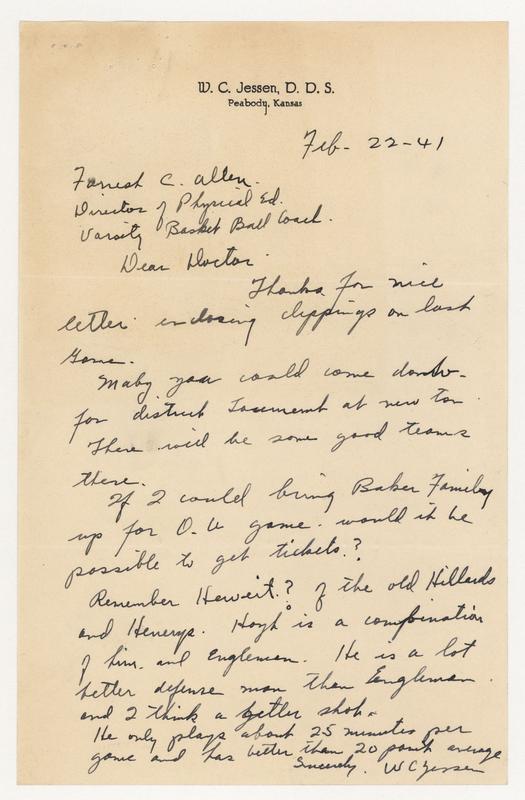 W. C. Jessen, D. D. S.
Peabody, Kansas
Feb- 22-41
Forrest C. Allen.
Director of Physical Ed.
Varsity Basket Ball Coach.
Dear Doctor
Thanks for nice
letter enclosing clippings on last
Game.
Maby you could come down
for district Tournment at newton.
There will be some good teams
there.
If I could bring Baker Family
up for O.U game. would it be
possible to get tickets.?
Remember Heweit.? of the old Hillards
and Henerys. Hoyt is a combination
of him. and Engleman. He is a lot
better defense man than Engleman.
and I think a better shot.
He only plays about 25 minutes per
game and has better than 20 point average
Sincerely. W C Jessen